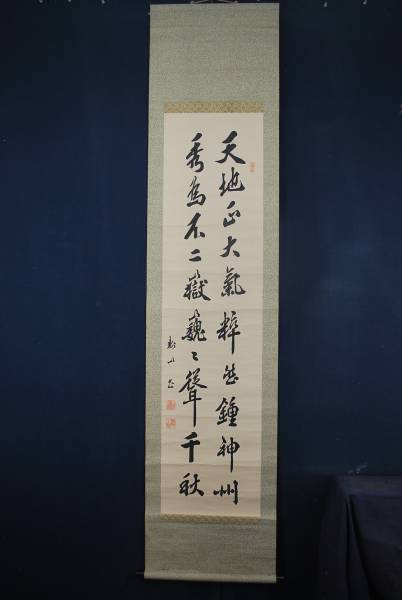 天地正大氣粹然鍾神州
秀為不二嶽巍々聳千秋